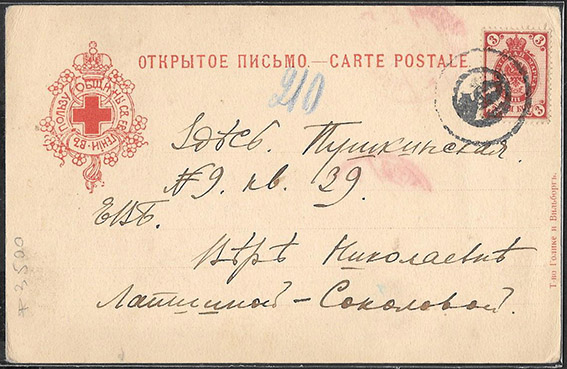 ОТКРЫТОЕ ПИСЬМО.—CARTE POSTALE.
ВЪ ПОЛЬЗУ ОБЩИНЫ СВ. ЕВГЕНІИ
3 3
3 3
210
Здѣсь. Пушкинская.
№9. кв. 29.
ЕВБ.
Вѣрѣ Николаевнѣ
Лапшиной-Соколовой.
Т-во Голике и Вильборгъ.
3,500